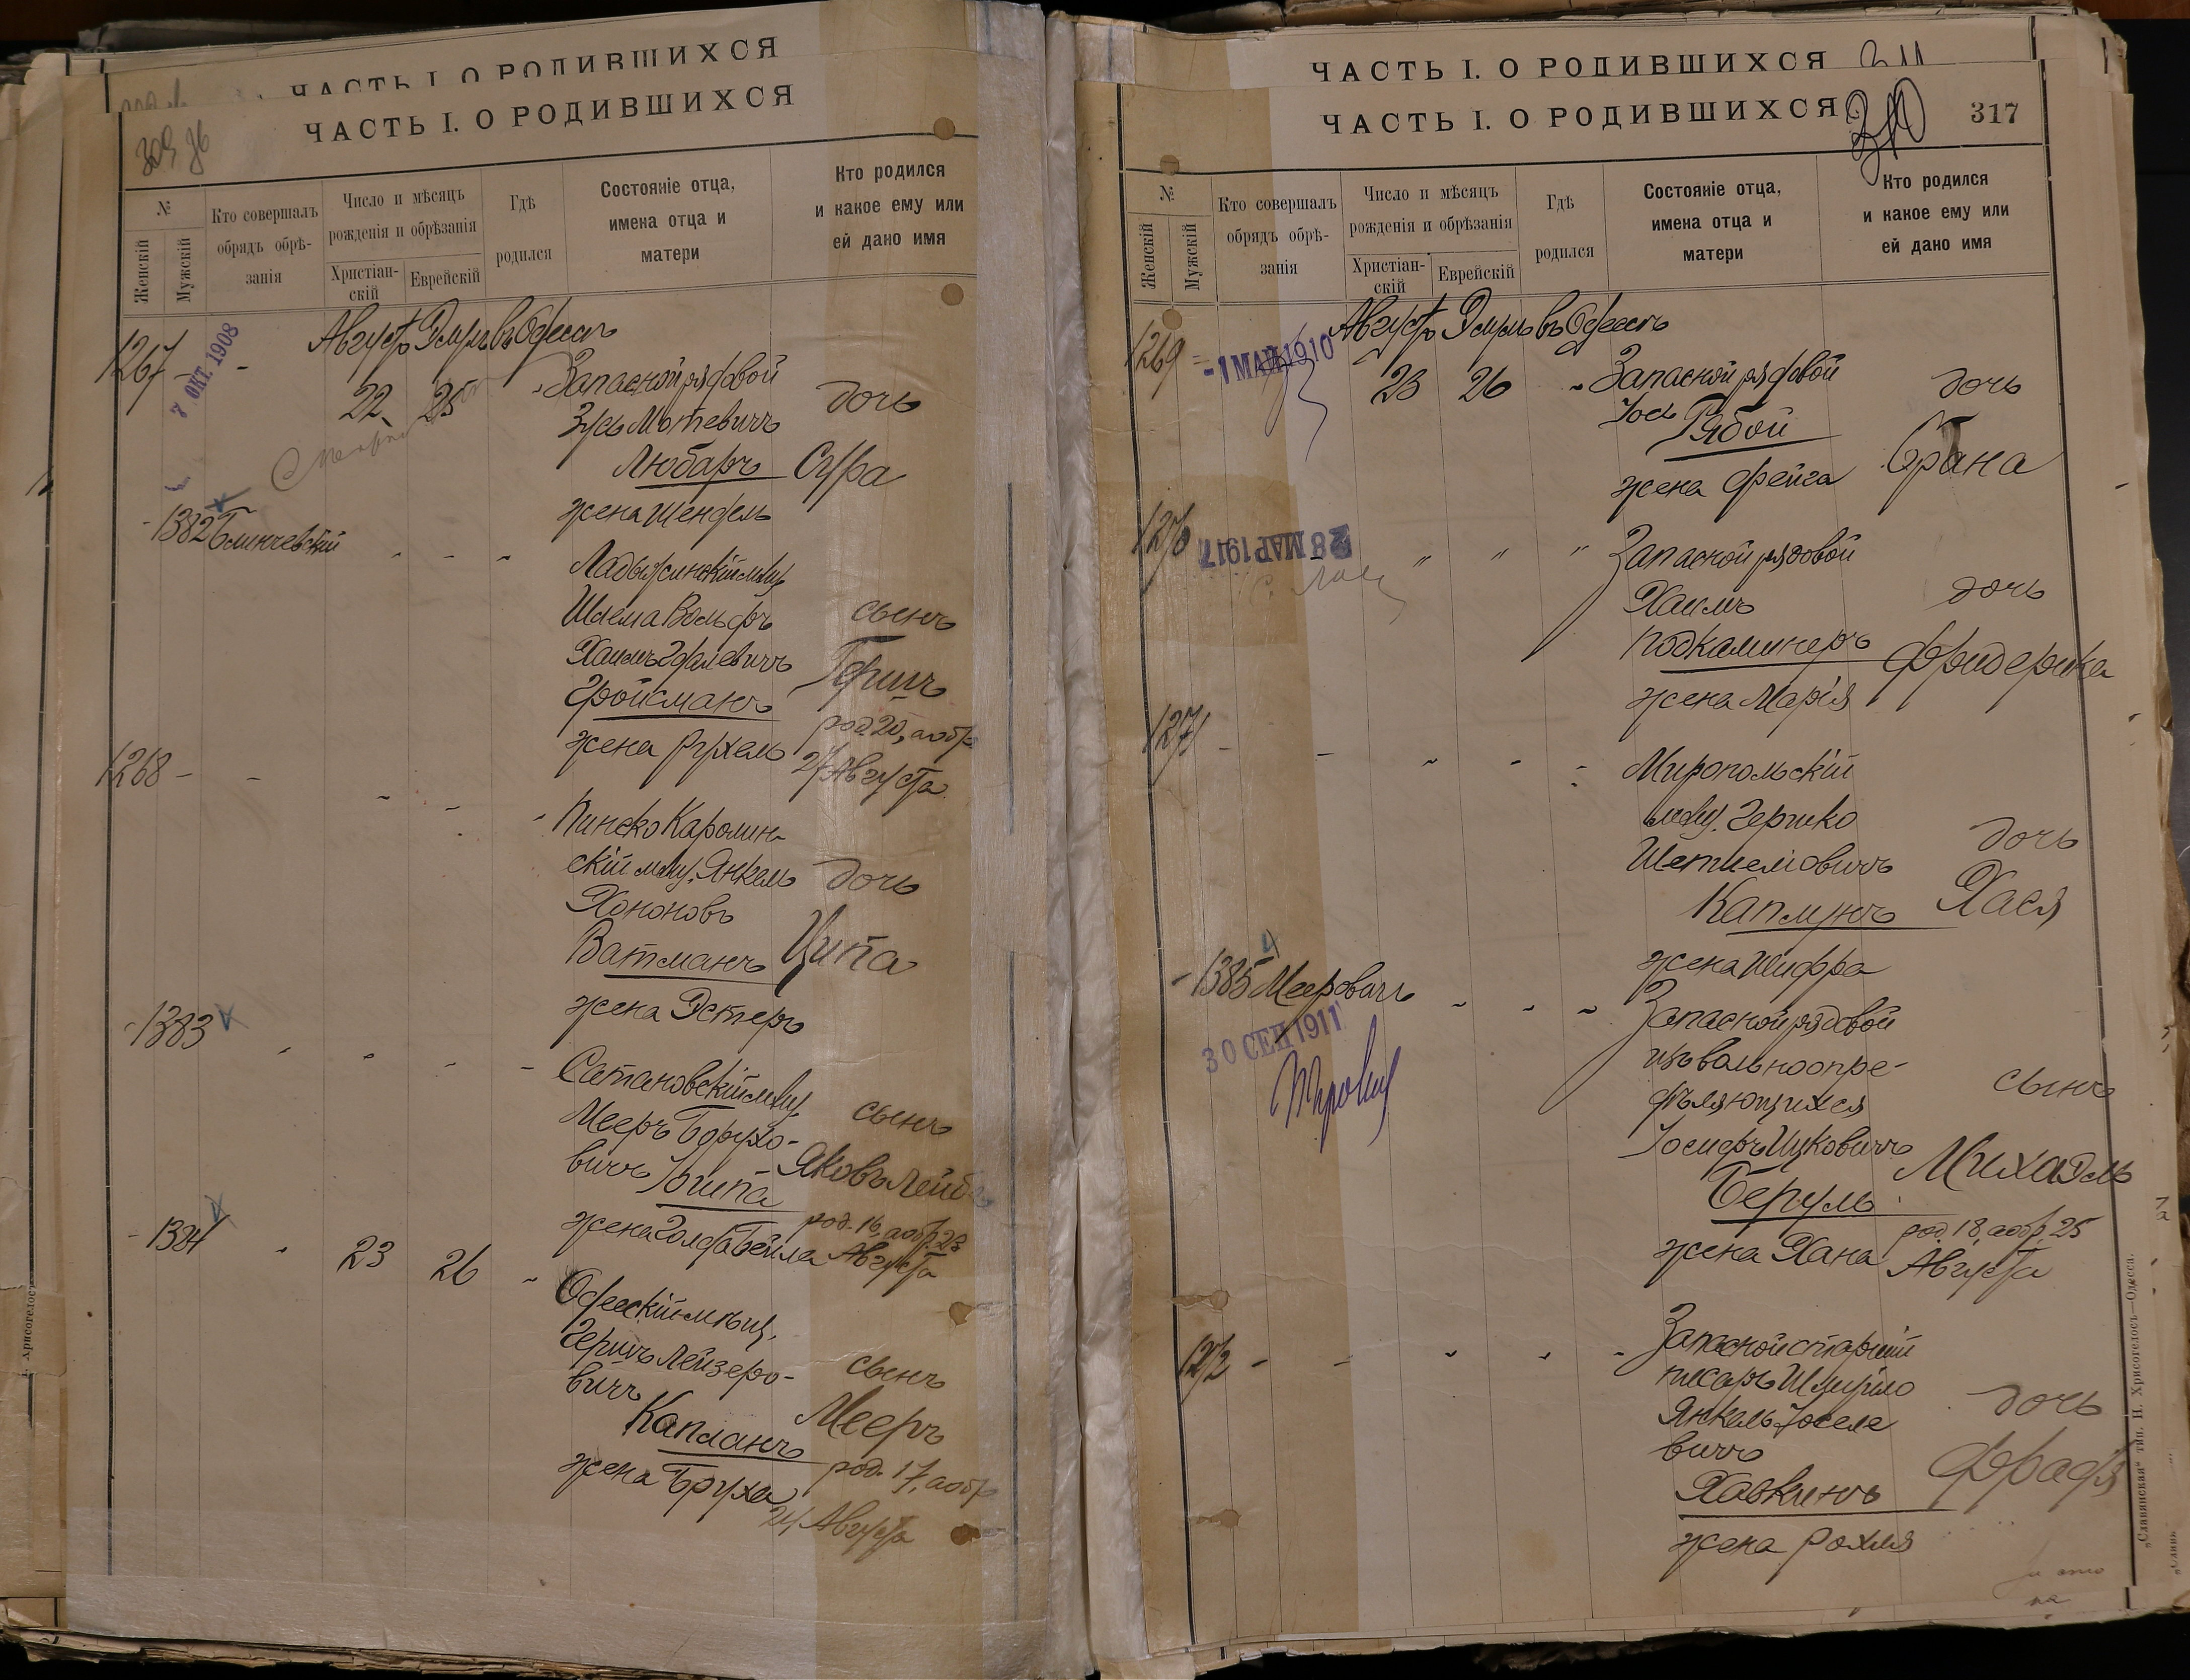 ЧАСТЬ I. О РОДИВШИХСЯ
ЧАСТЬ I. О РОДИВШИХСЯ
№
Женскій
Мужскій
Кто совершалъ
обрядъ обрѣ-
занія
Число и мѣсяцъ
рожденія и обрѣзанія
Христіан-
скій
Еврейскій
Гдѣ
родился
Состояніе отца,
имена отца и
матери
Кто родился
и какое ему или
ей дано имя
Августъ Элулъ въ Одессѣ
1267 - -
7 ОКТ. 1908
22 25
Запасной рядовой
Зусь Мотевичъ
Любаръ
жена Шендель
дочь
Сура
1382 Блинчевскій
Ладыжинскій мѣщ.
Шлема Вольфъ
Хаимъ
Гройсманъ
жена Рухель
сынъ
Гершъ
род 20, а обр
27 Августа
1268 - -
Пинско Каролин-
скій мѣщ. Янкель
Хононовъ
Ватманъ
жена Эстеръ
дочь
Ципа
1383
Сатановскій мѣщ.
Мееръ Борухо-
вичъ
жена Голда Бейла
сынъ
Яковъ Лейба
род. 16, а обр. 23
Августа
1384
23 26
Одесскій мѣщ.
Гершъ Лейзеро-
вичъ
Капланъ
жена Бруха
сынъ
Мееръ
род. 17, а обр
24 Августа
ЧАСТЬ I. О РОДИВШИХСЯ
ЧАСТЬ I. О РОДИВШИХСЯ
310
317
№
Женскій
Мужскій
Кто совершалъ
обрядъ обрѣ-
занія
Число и мѣсяцъ
рожденія и обрѣзанія
Христіан-
скій
Еврейскій
Гдѣ
родился
Состояніе отца,
имена отца и
матери
Кто родился
и какое ему или
ей дано имя
Августъ Элулъ въ Одессѣ
1269
- 1 МАЙ 1910
23 26
Запасной рядовой
Іось
Рябой
жена Фейга
дочь
Брана
1270
28 МАР 1917
" " "
Запасной рядовой
Хаимъ
Подкаминеръ
жена Марія
дочь
Фридерика
1271 -
Миропольскій
мѣщ. Гершко
Каплунъ
жена Шифра
дочь
Хася
1385 Мееровичъ
30 СЕН 1911
Запасной рядовой
изъ вольноопре-
дѣляющихся
Іосифъ Ицковичъ
Бегуль
жена Хана
сынъ
Михаэль
род. 18, а обр. 25
Августа
1272 -
Запасной старшій
писарь Шмуйло
Янкель Іоселе
вичъ
Хавкинъ
жена Рохля
дочь
Фрадя
„Славянская" тип. Н. Хрисогелосъ—Одесса.